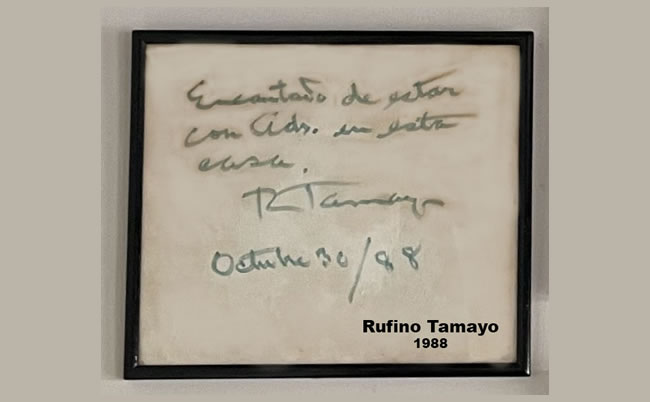 Encantado de estar
con Uds. en esta
casa.
R Tamayo
Octubre 30/88
Rufino Tamayo
1988